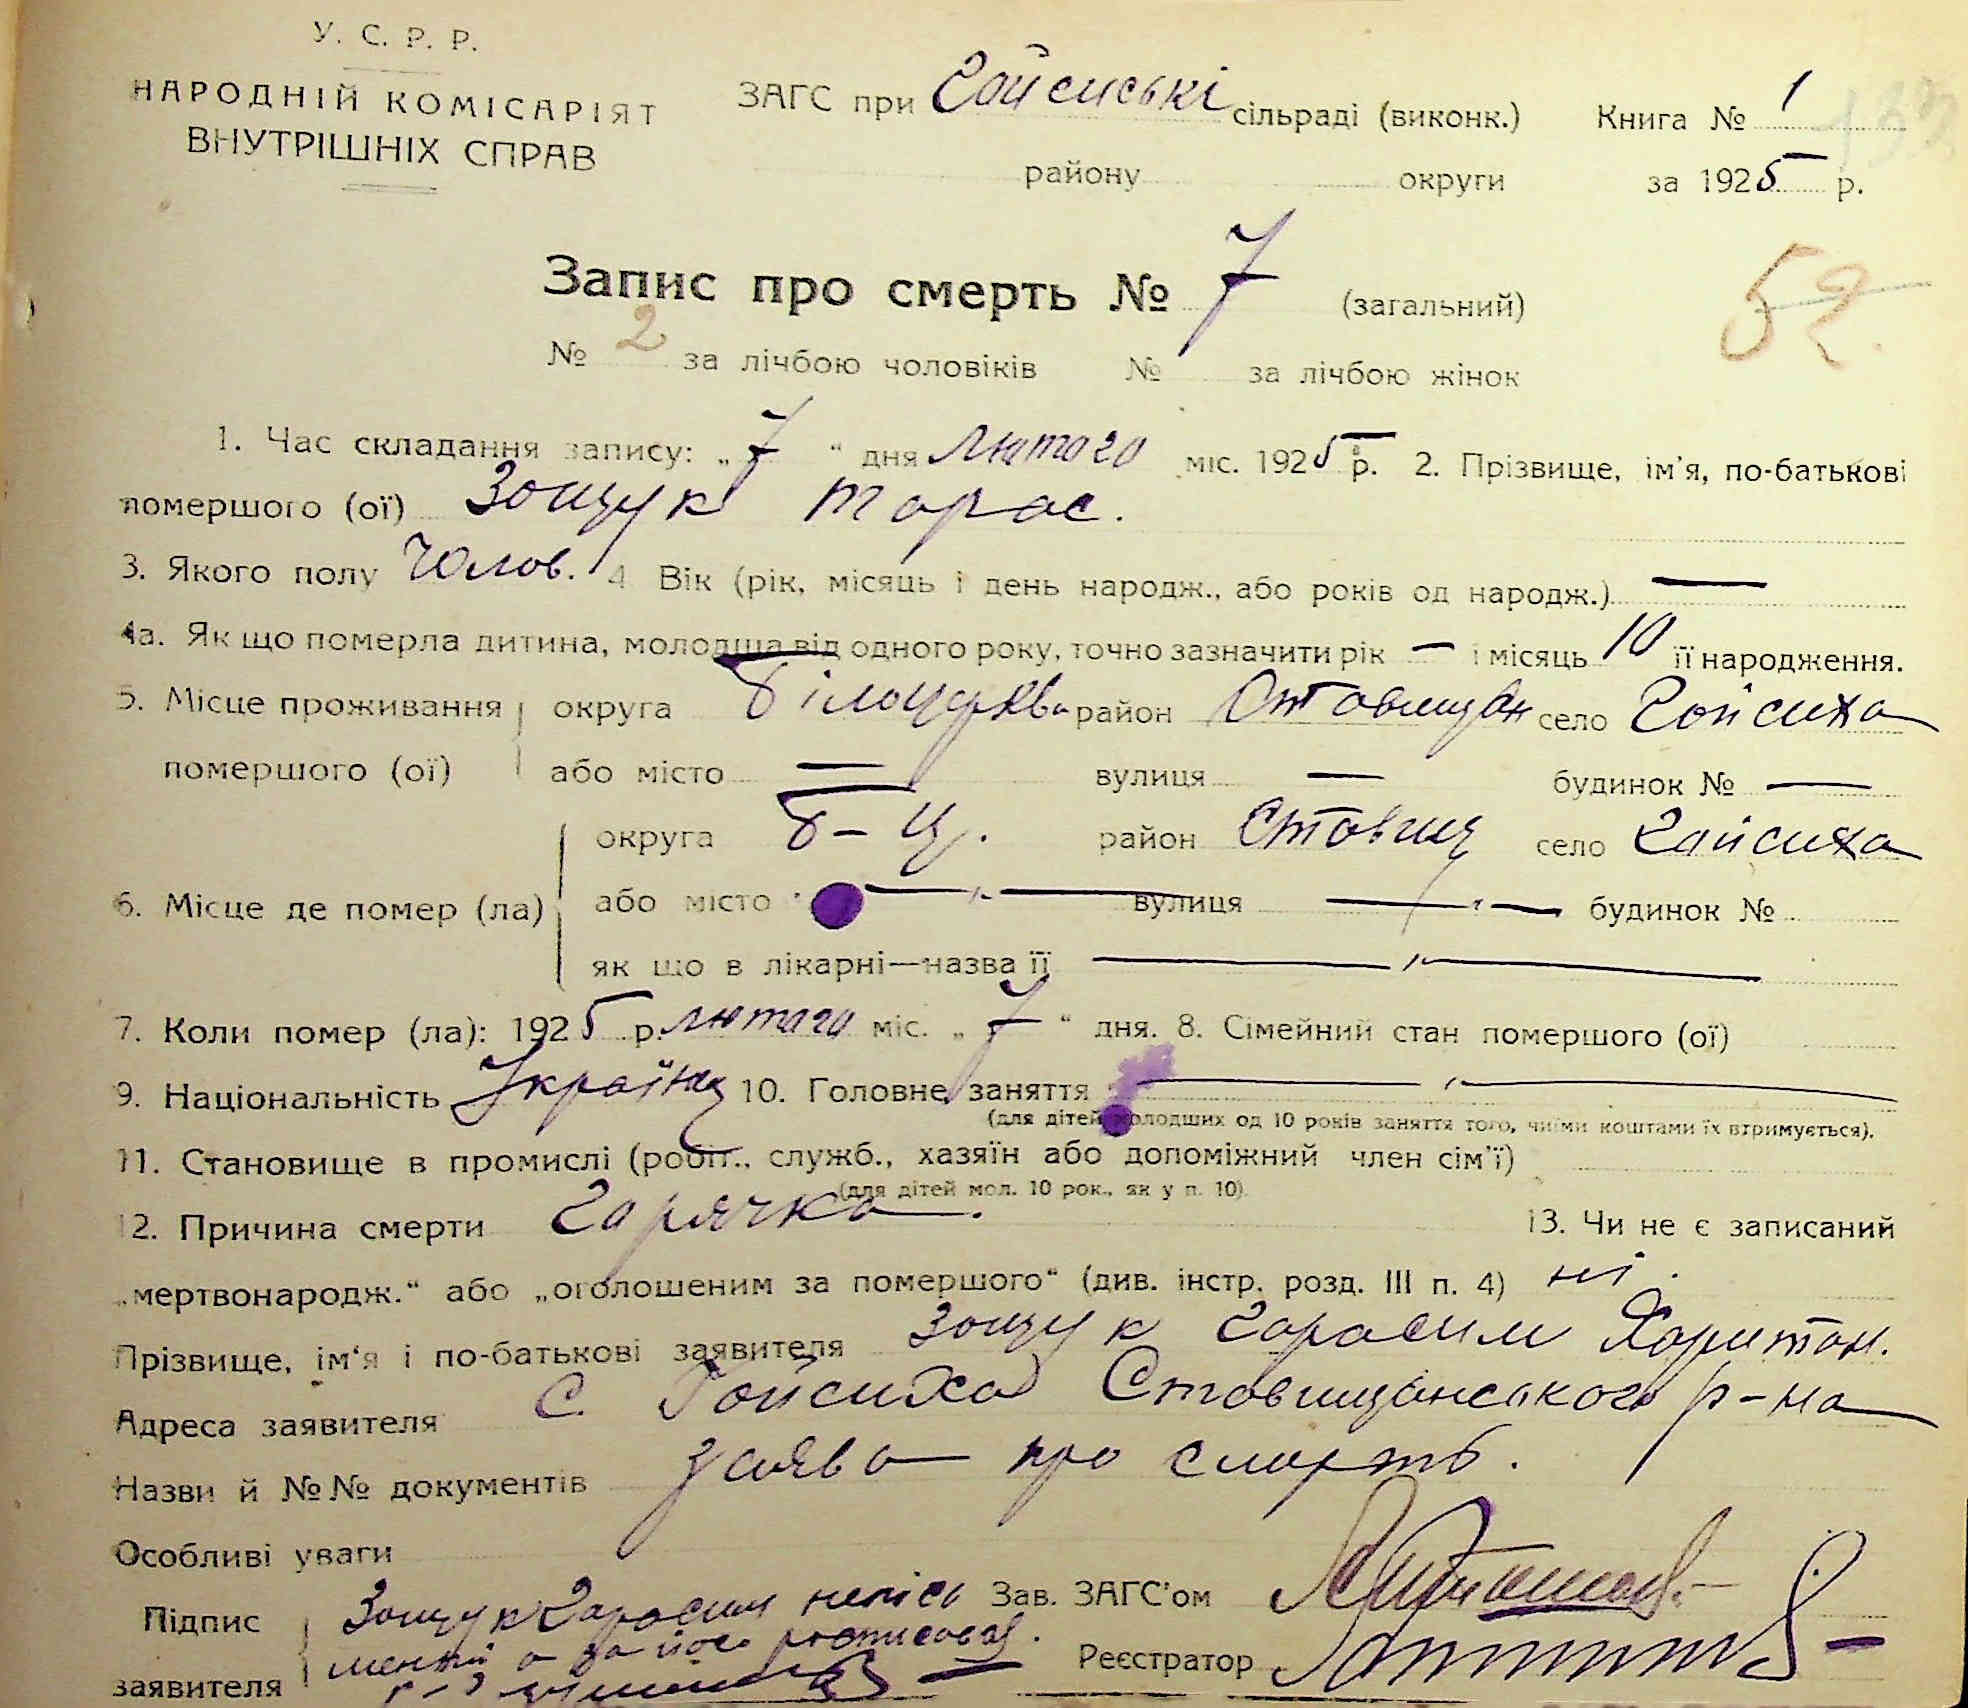 У. С. Р. Р.
НАРОДНІЙ КОМІСАРІЯТ
ВНУТРІШНІХ СПРАВ
ЗАГС при Гайсиські сільраді (виконк.) Книга № 1
району округи за 1925 р.
Запис про смерть № 7 (загальний)
52
№ 2 за лічбою чоловіків № за лічбою жінок
1. Час складання запису: „7“ дня Лютаго міс. 1925 р. 2. Прізвище, ім'я, по-батькові
помершого (ої) Зощук Тарас.
3. Якого полу Чолов. 4 Вік (рік, місяць і день народж., або років од народж.) —
4а. Як що померла дитина, молодша від одного року, точно зазначити рік — і місяць 10 її народження.
5. Місце проживання помершого (ої) округа Білоцерква район Ставищан село Гайсиха
або місто — вулиця — будинок № —
6. Місце де помер (ла) округа Б-Ц. район Ставищ село Гайсиха
або місто — „ — вулиця — „ — будинок №
як що в лікарні—назва її — „ —
7. Коли помер (ла): 1925 р. лютаго міс. „7“ дня. 8. Сімейний стан помершого (ої)
9. Національність Україн 10. Головне заняття — „ —
(для дітей молодших од 10 років заняття того, чиїми коштами їх втримується).
11. Становище в промислі (робіт., служб., хазяїн або допоміжний член сім'ї)
(для дітей мол. 10 рок., як у п. 10)
12. Причина смерти Гарячка. 13. Чи не є записаний
„мертвонародж.“ або „оголошеним за помершого“ (див. інстр. розд. III п. 4) ні.
Прізвище, ім'я і по-батькові заявителя Зощук Гарасим Харитон.
Адреса заявителя С. Гайсиха Ставищанського р-на
Назви й №№ документів заява про смерть.
Особливі уваги
Підпис заявителя Зощук Гарасим неписьменний а за його росписався
Зав. ЗАГС'ом
Реєстратор